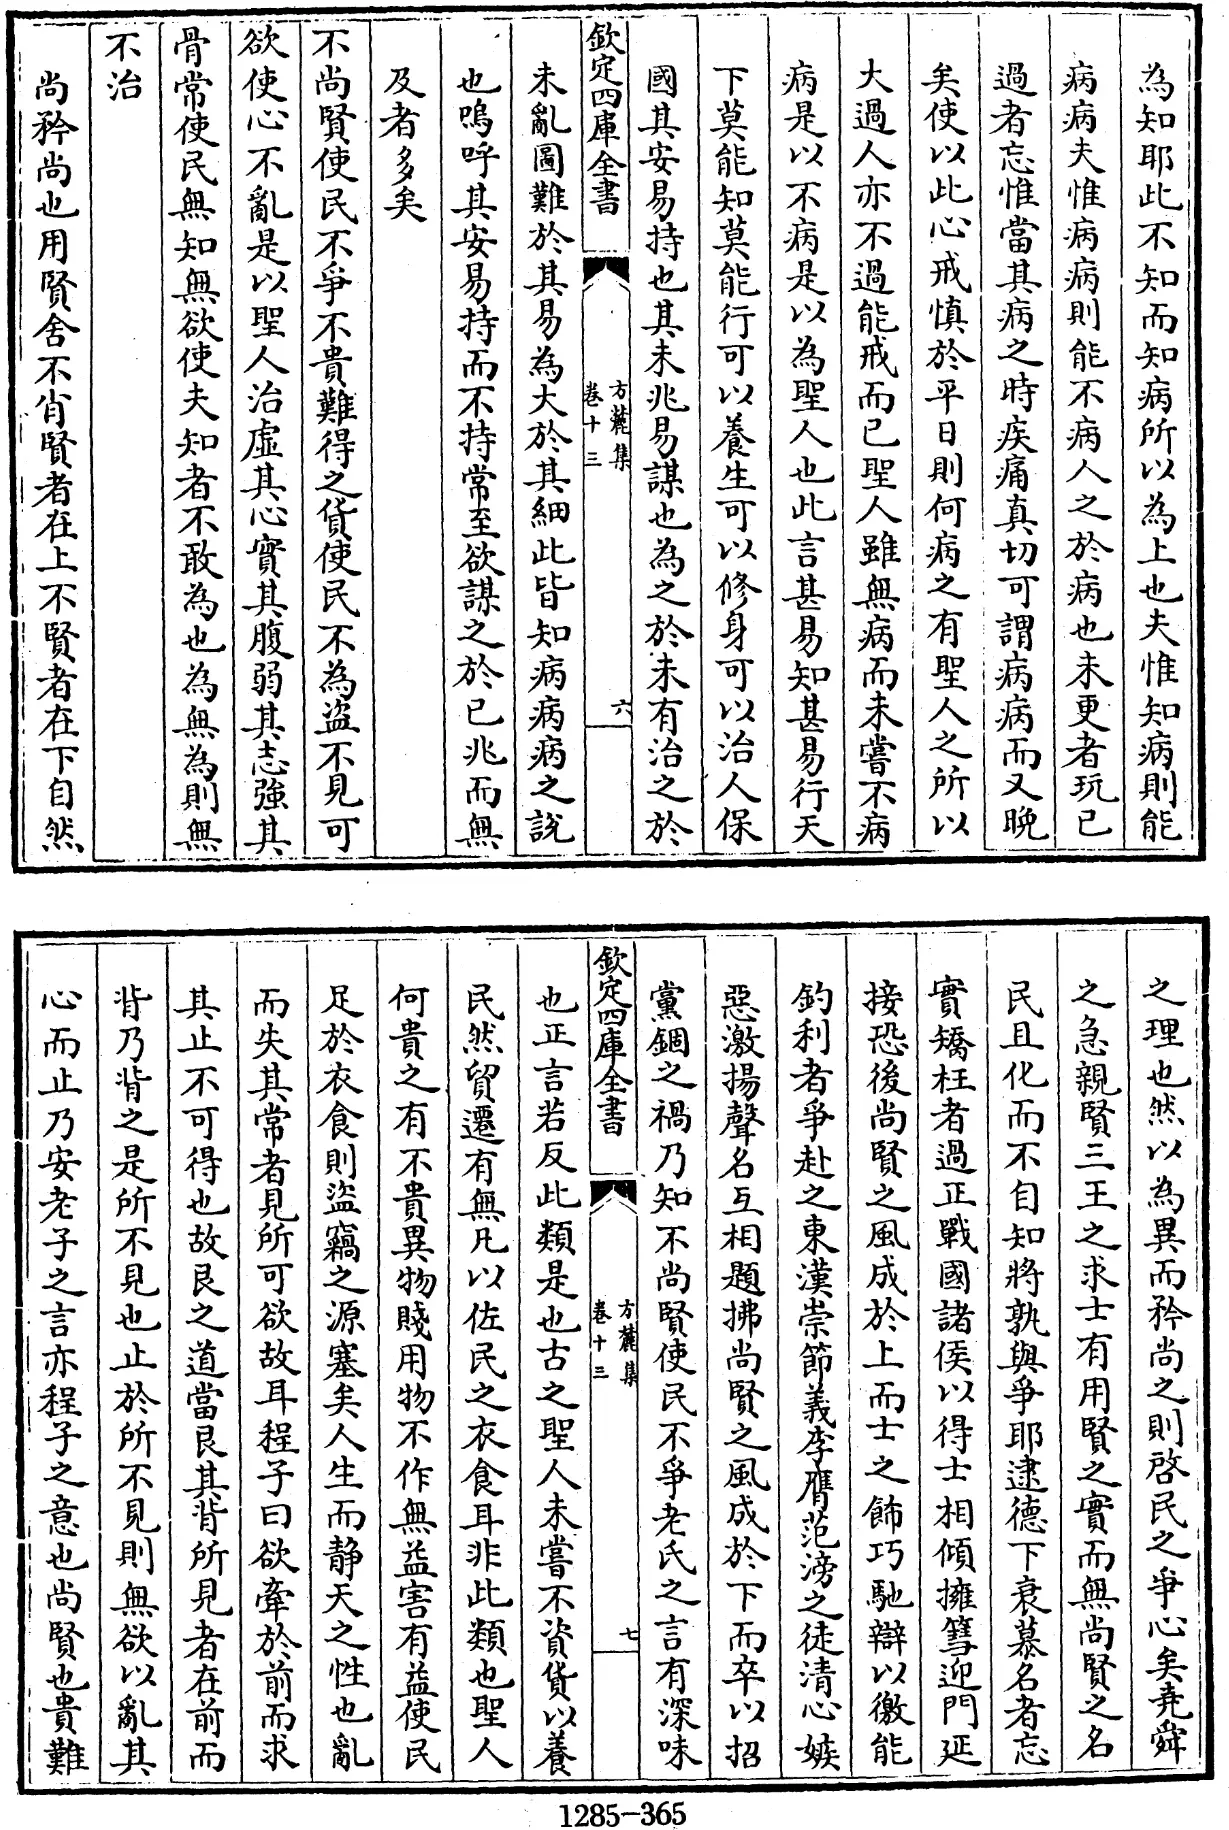 為知耶此不知而知病所以為上也夫惟知病則能
病病夫惟病病則能不病人之於病也未更者玩已
過者忘惟當其病之時疾痛真切可謂病病而又晩
矣使以此心戒慎於平日則何病之有聖人之所以
大過人亦不過能戒而已聖人雖無病而未嘗不病
病是以不病是以為聖人也此言甚易知甚易行天
下莫能知莫能行可以養生可以修身可以治人保
國其安易持也其未兆易謀也為之於未有治之於
欽定四庫全書
方麓集
卷十三
六
未亂圖難於其易為大於其細此皆知病病病之說
也嗚呼其安易持而不持常至欲謀之於已兆而無
及者多矣
不尚賢使民不爭不貴難得之貨使民不為盜不見可
欲使心不亂是以聖人治虛其心實其腹弱其志強其
骨常使民無知無欲使夫知者不敢為也為無為則無
不治
尚矜尚也用賢舍不肖賢者在上不賢者在下自然
之理也然以為異而矜尚之則啓民之爭心矣堯舜
之急親賢三王之求士有用賢之實而無尚賢之名
民且化而不自知將孰與爭耶逮德下衰慕名者忘
實矯枉者過正戰國諸侯以得士相傾擁篲迎門延
接恐後尚賢之風成於上而士之飾巧馳辯以徼能
釣利者爭赴之東漢崇節義李膺范滂之徒清心嫉
惡激揚聲名互相題拂尚賢之風成於下而卒以招
黨錮之禍乃知不尚賢使民不爭老氏之言有深味
欽定四庫全書
方麓集
卷十三
七
也正言若反此類是也古之聖人未嘗不資貨以養
民然貿遷有無凡以佐民之衣食耳非此類也聖人
何貴之有不貴異物賤用物不作無益害有益使民
足於衣食則盜竊之源塞矣人生而静天之性也亂
而失其常者見所可欲故耳程子曰欲牽於前而求
其止不可得也故艮之道當艮其背所見者在前而
背乃背之是所不見也止於所不見則無欲以亂其
心而止乃安老子之言亦程子之意也尚賢也貴難
1285-365